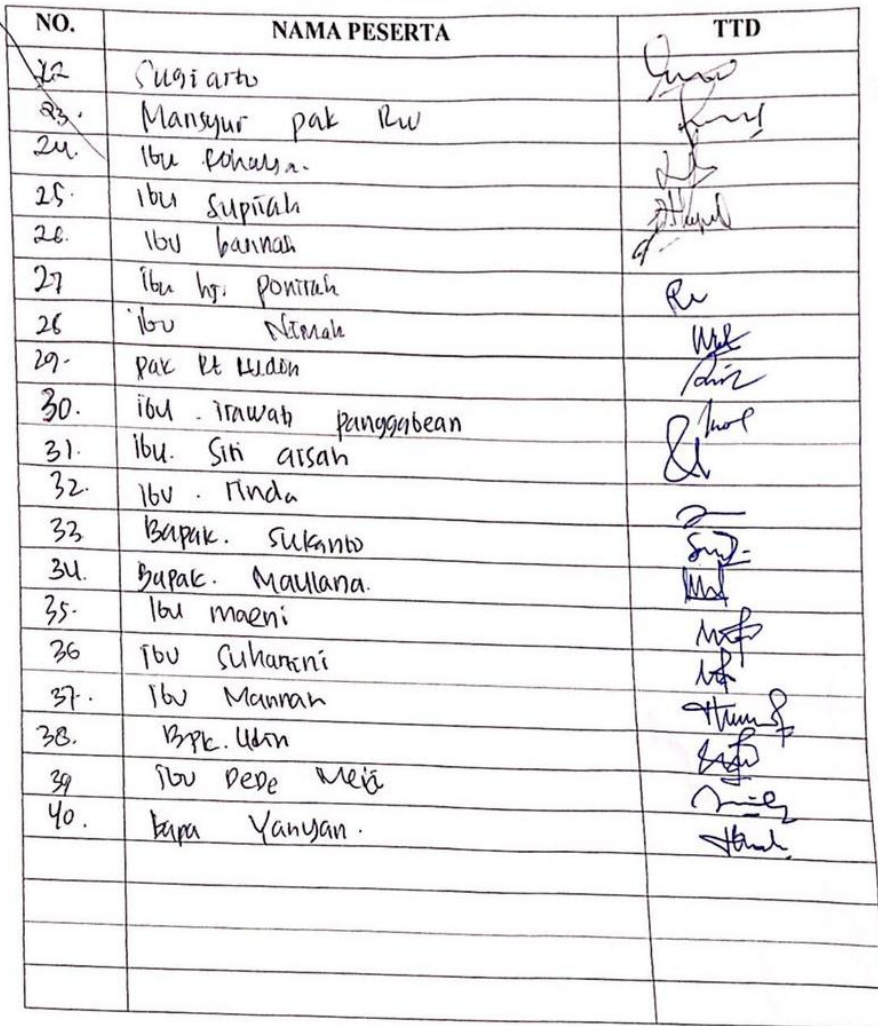 NO. NAMA PESERTA TTD
22 Sugiarto
23. Mansyur pak Rw
24. Ibu Rohaya.
25. Ibu Supriah
26. Ibu
27 ibu hj. ponirah
28 ibu Nimah
29. pak Rt
30. ibu . irawati panggabean
31. ibu. Siti aisah
32. ibu . rinda
33 Bapak. Sukanto
34. Bapak. Maulana.
35. Ibu maeni
36 Ibu Suhartini
37. Ibu Mannah
38. Bpk. Udin
39 Ibu DeDe
40. bapa Yanyan.